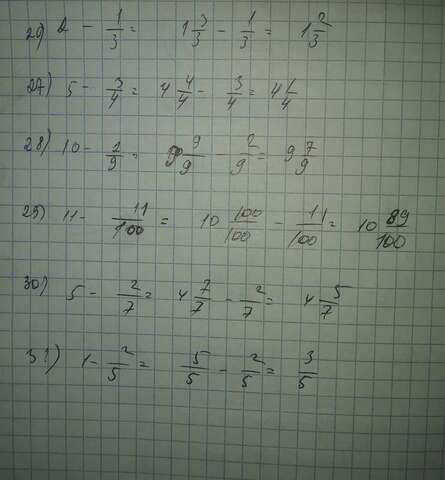 29) 2 - 1/3 = 1 3/3 - 1/3 = 1 2/3
27) 5 - 3/4 = 4 4/4 - 3/4 = 4 1/4
28) 10 - 2/9 = 9 9/9 - 2/9 = 9 7/9
29) 11 - 11/100 = 10 100/100 - 11/100 = 10 89/100
30) 5 - 2/7 = 4 7/7 - 2/7 = 4 5/7
31) 1 - 2/5 = 5/5 - 2/5 = 3/5